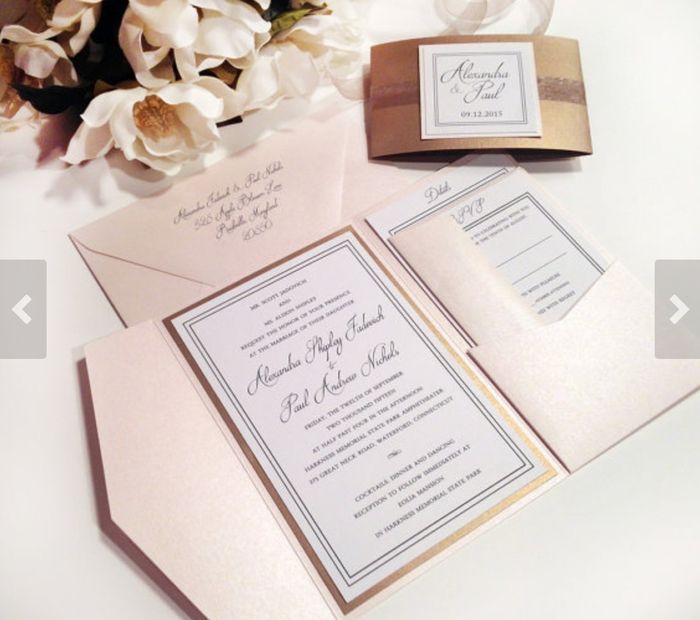 Alexandra
& Paul
09.12.2015
Alexandra Fadovich & Paul Nichols
325 Apple Blossom Lane
Rockville, Maryland
20850
Details
RSVP
TO CELEBRATING WITH YOU
THE TENTH OF AUGUST.
WITH PLEASURE
WITH REGRET
MR. SCOTT JADOVICH
AND
MS. ALISON SHIPLEY
REQUEST THE HONOR OF YOUR PRESENCE
AT THE MARRIAGE OF THEIR DAUGHTER
Alexandra Shipley Fadovich
&
Paul Andrew Nichols
FRIDAY, THE TWELTH OF SEPTEMBER
TWO THOUSAND FIFTEEN
AT HALF PAST FOUR IN THE AFTERNOON
HARKNESS MEMORIAL STATE PARK AMPHITHEATER
275 GREAT NECK ROAD, WATERFORD, CONNECTICUT
COCKTAILS, DINNER AND DANCING
RECEPTION TO FOLLOW IMMEDIATELY AT
EOLIA MANSION
IN HARKNESS MEMORIAL STATE PARK